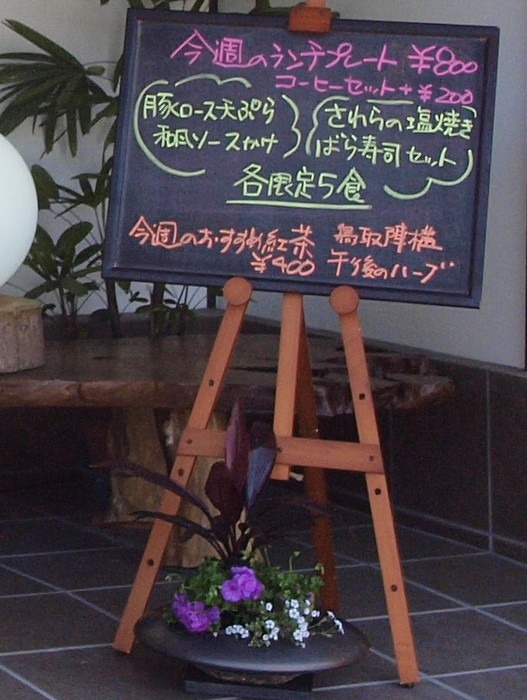 今週のランチプレート ¥800
コーヒーセット+¥200
豚ロース天ぷら
和風ソースかけ
さわらの塩焼き
ばら寿司セット
各限定5食
今週のおすすめ紅茶 鳥取陣構
¥400 午後のハーブ